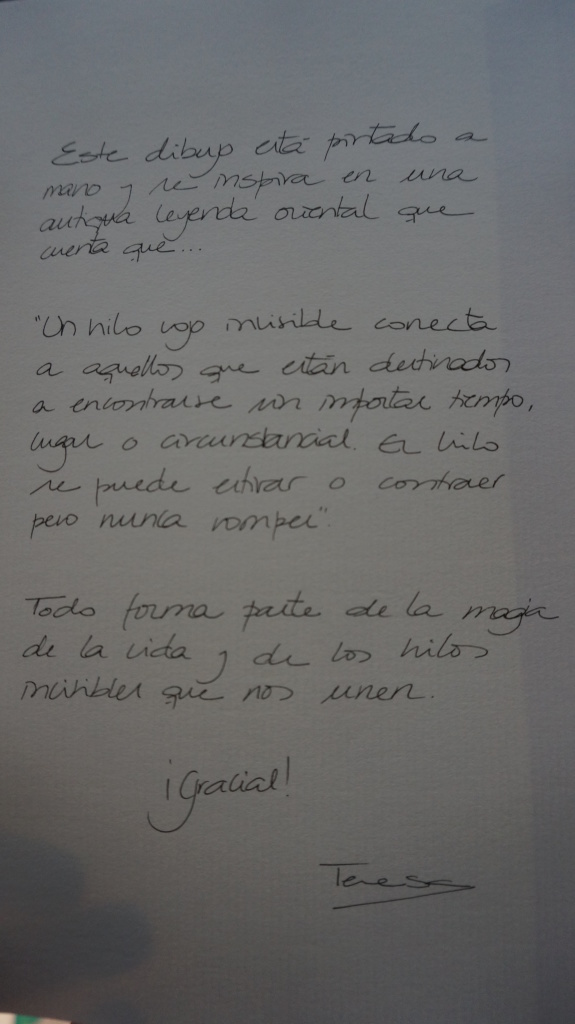 Este dibujo está pintado a
mano y se inspira en una
antigua leyenda oriental que
cuenta que...
"Un hilo rojo invisible conecta
a aquellos que están destinados
a encontrarse sin importar tiempo,
lugar o circunstancias. El hilo
se puede estirar o contraer
pero nunca romper".
Todo forma parte de la magia
de la vida y de los hilos
invisibles que nos unen.
¡Gracias!
Teresa